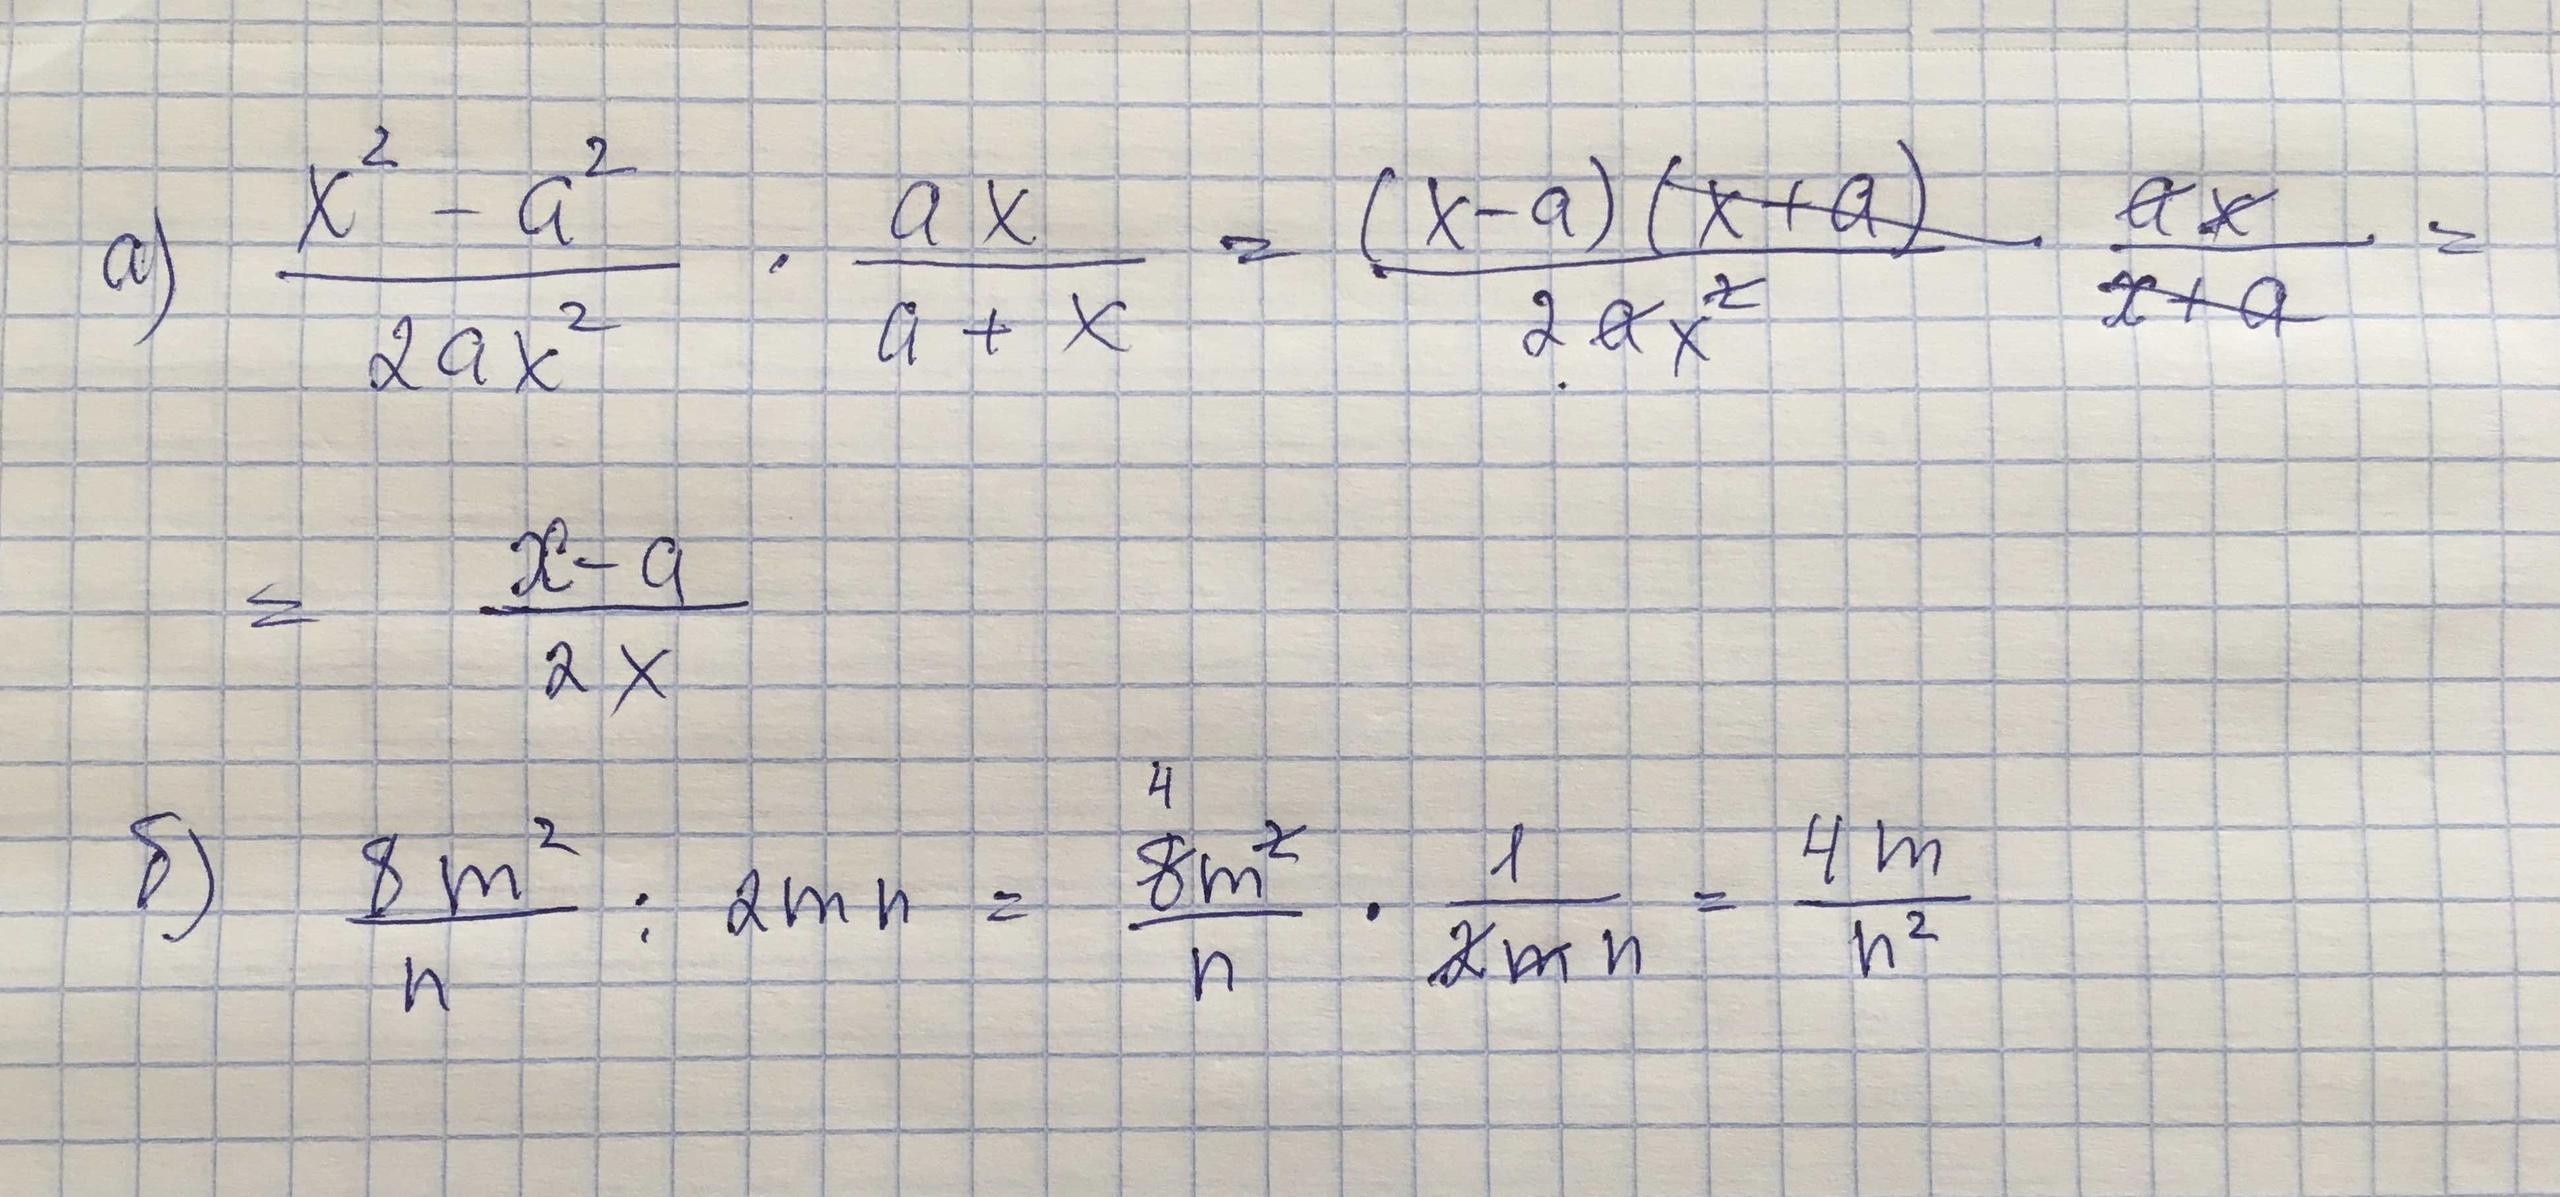 а) (x² - a²)/(2ax²) · (ax)/(a + x) = ((x-a)(x+a))/(2ax²) · (ax)/(x+a) =
= (x-a)/(2x)
б) (8m²)/n : 2mn = 4 (8m²)/n · 1/(2mn) = (4m)/(n²)